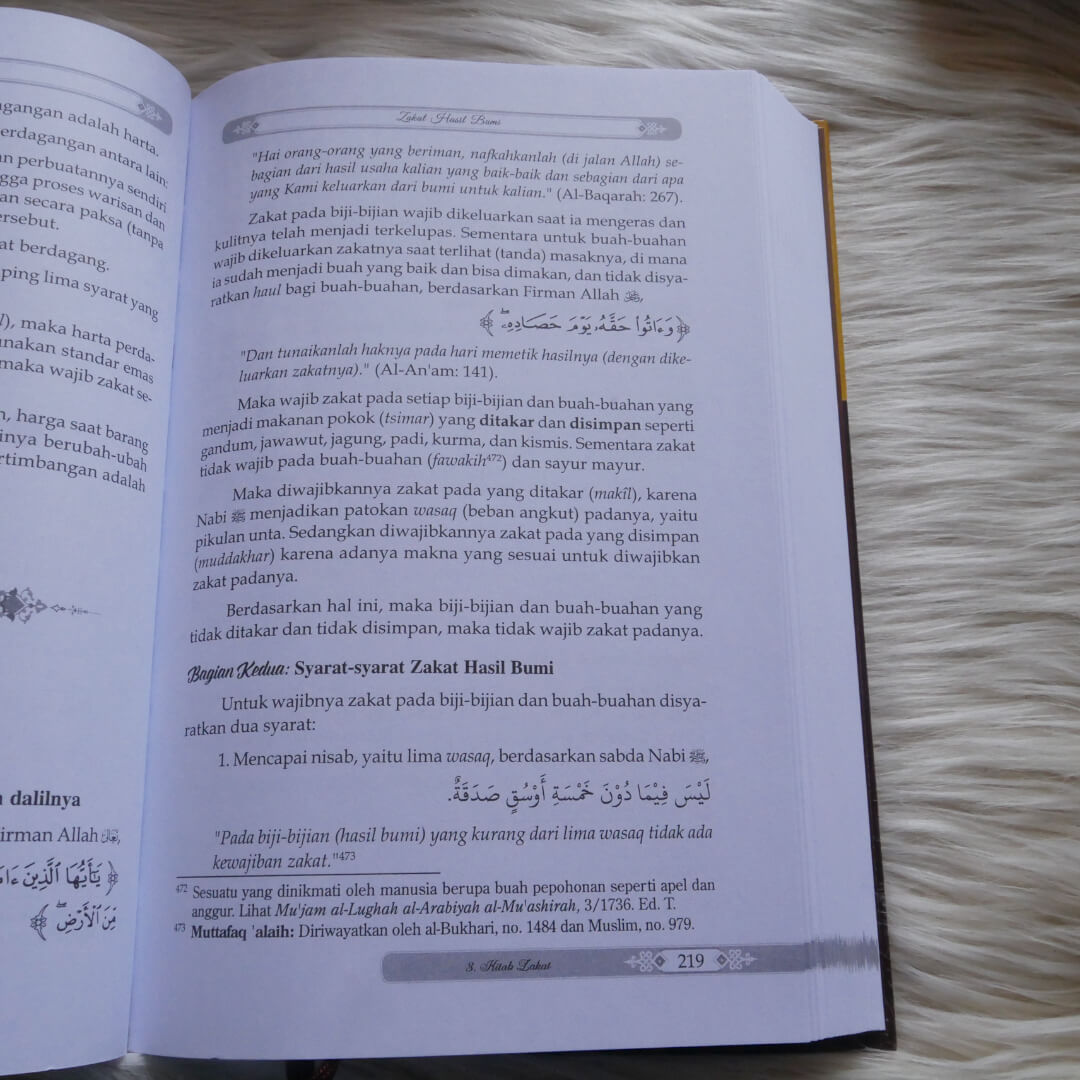 adalah harta.
erdagangan antara lain:
perbuatannya sendiri
proses warisan dan
secara paksa (tanpa
ersebut.
at berdagang.
ping lima syarat yang
maka harta perda-
unakan standar emas
maka wajib zakat se-
harga saat barang
inya berubah-ubah
rtimbangan adalah
dalilnya
Firman Allah ﷻ,
﴿ يَٰٓأَيُّهَا ٱلَّذِينَ
مِّنَ ٱلْأَرْضِ ۖ ﴾
Zakat Hasil Bumi
"Hai orang-orang yang beriman, nafkahkanlah (di jalan Allah) se-
bagian dari hasil usaha kalian yang baik-baik dan sebagian dari apa
yang Kami keluarkan dari bumi untuk kalian." (Al-Baqarah: 267).
Zakat pada biji-bijian wajib dikeluarkan saat ia mengeras dan
kulitnya telah menjadi terkelupas. Sementara untuk buah-buahan
wajib dikeluarkan zakatnya saat terlihat (tanda) masaknya, di mana
ia sudah menjadi buah yang baik dan bisa dimakan, dan tidak disya-
ratkan haul bagi buah-buahan, berdasarkan Firman Allah ﷻ,
﴿ وَءَاتُوا۟ حَقَّهُۥ يَوْمَ حَصَادِهِۦ ۖ ﴾
"Dan tunaikanlah haknya pada hari memetik hasilnya (dengan dike-
luarkan zakatnya)." (Al-An'am: 141).
Maka wajib zakat pada setiap biji-bijian dan buah-buahan yang
menjadi makanan pokok (tsimar) yang ditakar dan disimpan seperti
gandum, jawawut, jagung, padi, kurma, dan kismis. Sementara zakat
tidak wajib pada buah-buahan (fawakih⁴⁷²) dan sayur mayur.
Maka diwajibkannya zakat pada yang ditakar (makîl), karena
Nabi ﷺ menjadikan patokan wasaq (beban angkut) padanya, yaitu
pikulan unta. Sedangkan diwajibkannya zakat pada yang disimpan
(muddakhar) karena adanya makna yang sesuai untuk diwajibkan
zakat padanya.
Berdasarkan hal ini, maka biji-bijian dan buah-buahan yang
tidak ditakar dan tidak disimpan, maka tidak wajib zakat padanya.
Bagian Kedua: Syarat-syarat Zakat Hasil Bumi
Untuk wajibnya zakat pada biji-bijian dan buah-buahan disya-
ratkan dua syarat:
1. Mencapai nisab, yaitu lima wasaq, berdasarkan sabda Nabi ﷺ,
لَيْسَ فِيْمَا دُوْنَ خَمْسَةِ أَوْسُقٍ صَدَقَةٌ.
"Pada biji-bijian (hasil bumi) yang kurang dari lima wasaq tidak ada
kewajiban zakat."⁴⁷³
⁴⁷² Sesuatu yang dinikmati oleh manusia berupa buah pepohonan seperti apel dan
anggur. Lihat Mu'jam al-Lughah al-Arabiyah al-Mu'ashirah, 3/1736. Ed. T.
⁴⁷³ Muttafaq 'alaih: Diriwayatkan oleh al-Bukhari, no. 1484 dan Muslim, no. 979.
3. Kitab Zakat 219